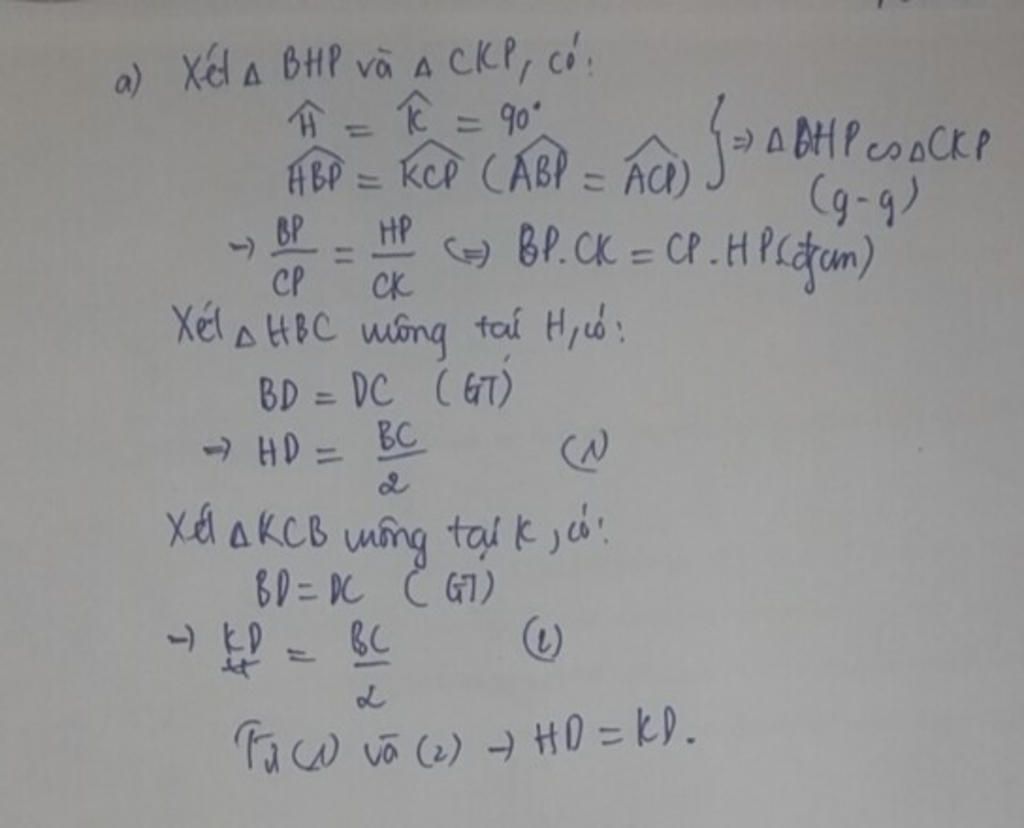 a) Xét △ BHP và △ CKP, có:
Ĥ = K̂ = 90°
HBP = KCP (ABP = ACP) } => △BHP ∽ △CKP
(g-g)
→ BP/CP = HP/CK <=> BP.CK = CP.HP (đpcm)
Xét △ HBC vuông tại H, có:
BD = DC (GT)
→ HD = BC/2 (1)
Xét △KCB vuông tại K, có:
BD = DC (GT)
→ KD = BC/2 (2)
Từ (1) và (2) → HD = KD.